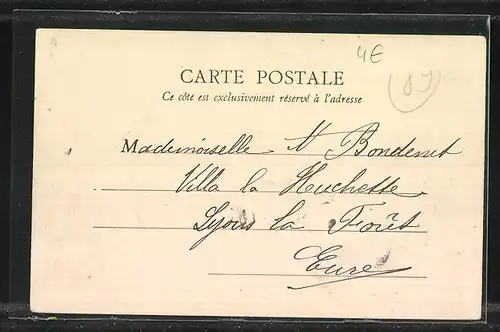 4E
CARTE POSTALE
Ce côté est exclusivement réservé à l'adresse
Mademoiselle
Villa la Huchette
Lyons la Forêt
Eure